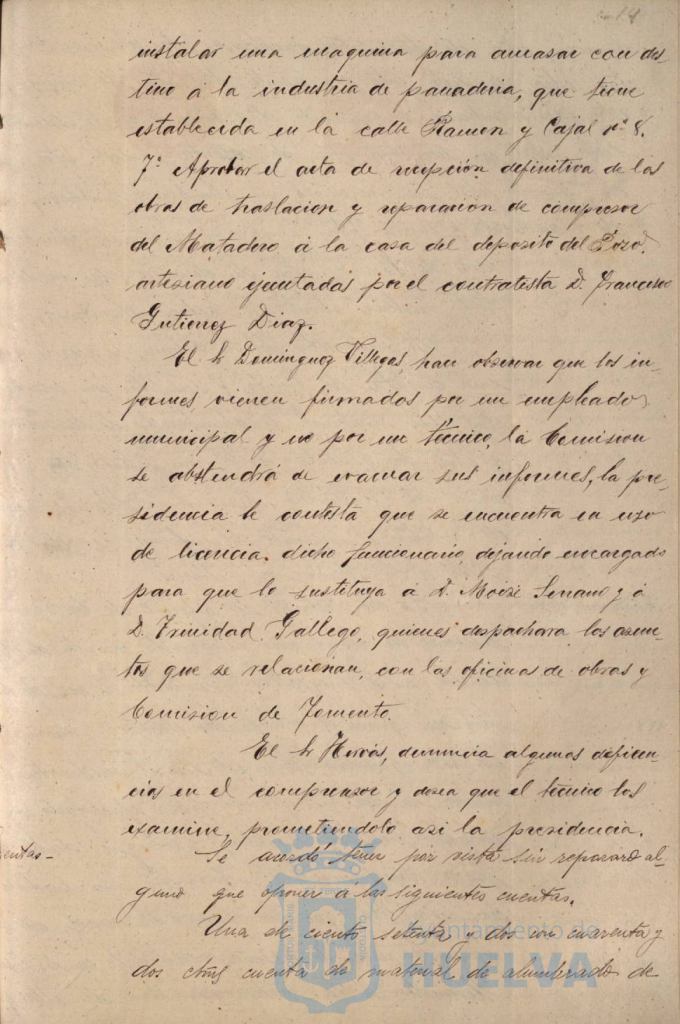 instalar una maquina para amasar con des
tino á la industria de panaderia, que tiene
establecida en la calle Ramon y Cajal nº 8.
7º Aprobar el acta de recepción definitiva de las
obras de traslacion y reparacion de compresor
del Matadero á la casa del deposito del Pozo
artesiano ejecutadas por el contratista D. Francisco
Gutierrez Diaz.
El Sr Dominguez Villegas, hace observar que los in-
formes vienen firmados por un empleado
municipal y no por un técnico, la Comision
se abstendrá de evacuar sus informes, la pre-
sidencia le contesta que se encuentra en uso
de licencia dicho funcionario, dejando encargado
para que lo sustituya á D. Serrano y á
D. Trinidad Gallego, quienes despachara los asun-
tos que se relacionan, con las oficinas de obras y
Comision de Fomento.
El Sr Hervás, denuncia algunas deficien-
cias en el compresor y desea que el técnico los
examine, prometiendolo asi la presidencia.
entas-
Se acordó tener por vista sin reparo al-
guno que oponer á las siguientes cuentas.
Una de ciento setenta y dos con cuarenta y
dos ctms cuenta de material de alumbrado de
Ayuntamiento de
HUELVA